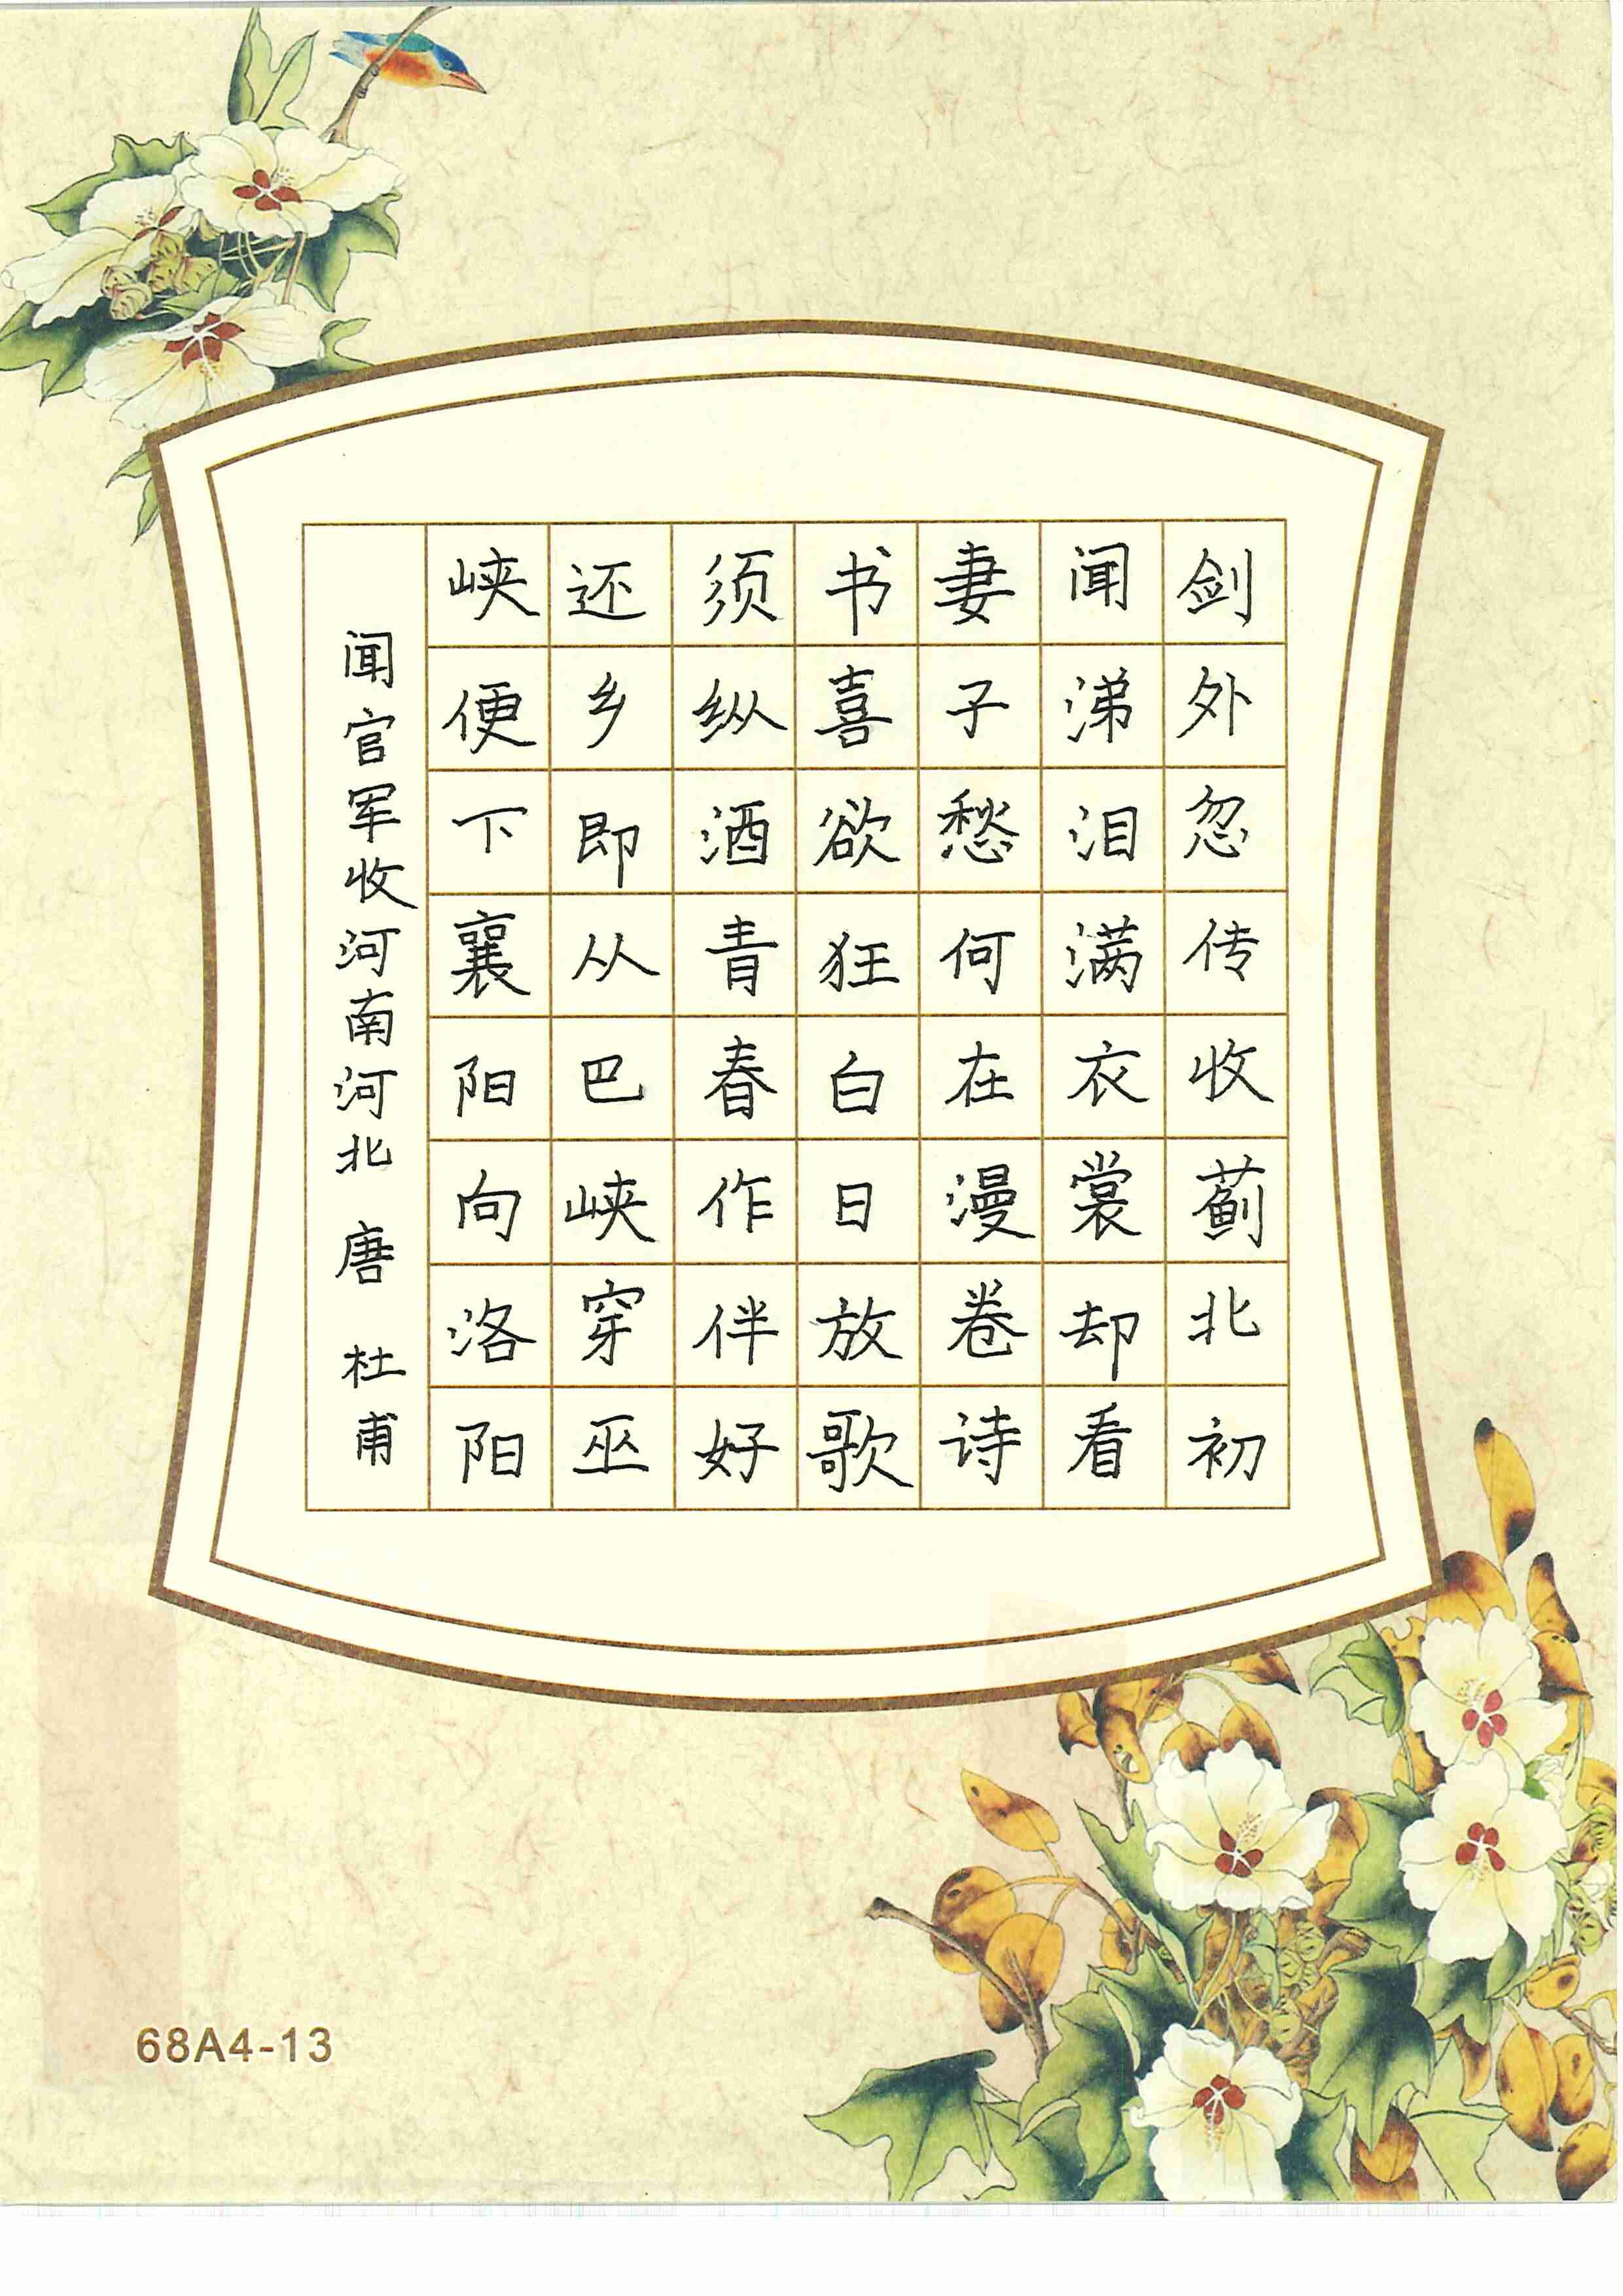 剑外忽传收蓟北初
闻涕泪满衣裳却看
妻子愁何在漫卷诗
书喜欲狂白日放歌
须纵酒青春作伴好
还乡即从巴峡穿巫
峡便下襄阳向洛阳
闻官军收河南河北 唐 杜甫
68A4-13